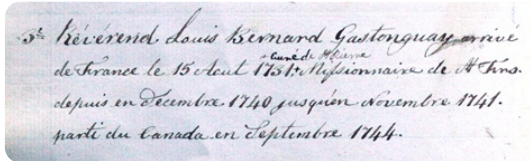 3e Révérend Louis Bernard Gastonguay arrivé
+ Curé de St Pierre
de France le 15 Aout 1731 + Missionnaire de St Frns.
depuis en Décembre 1740 jusqu'en Novembre 1741.
parti du Canada en Septembre 1744.